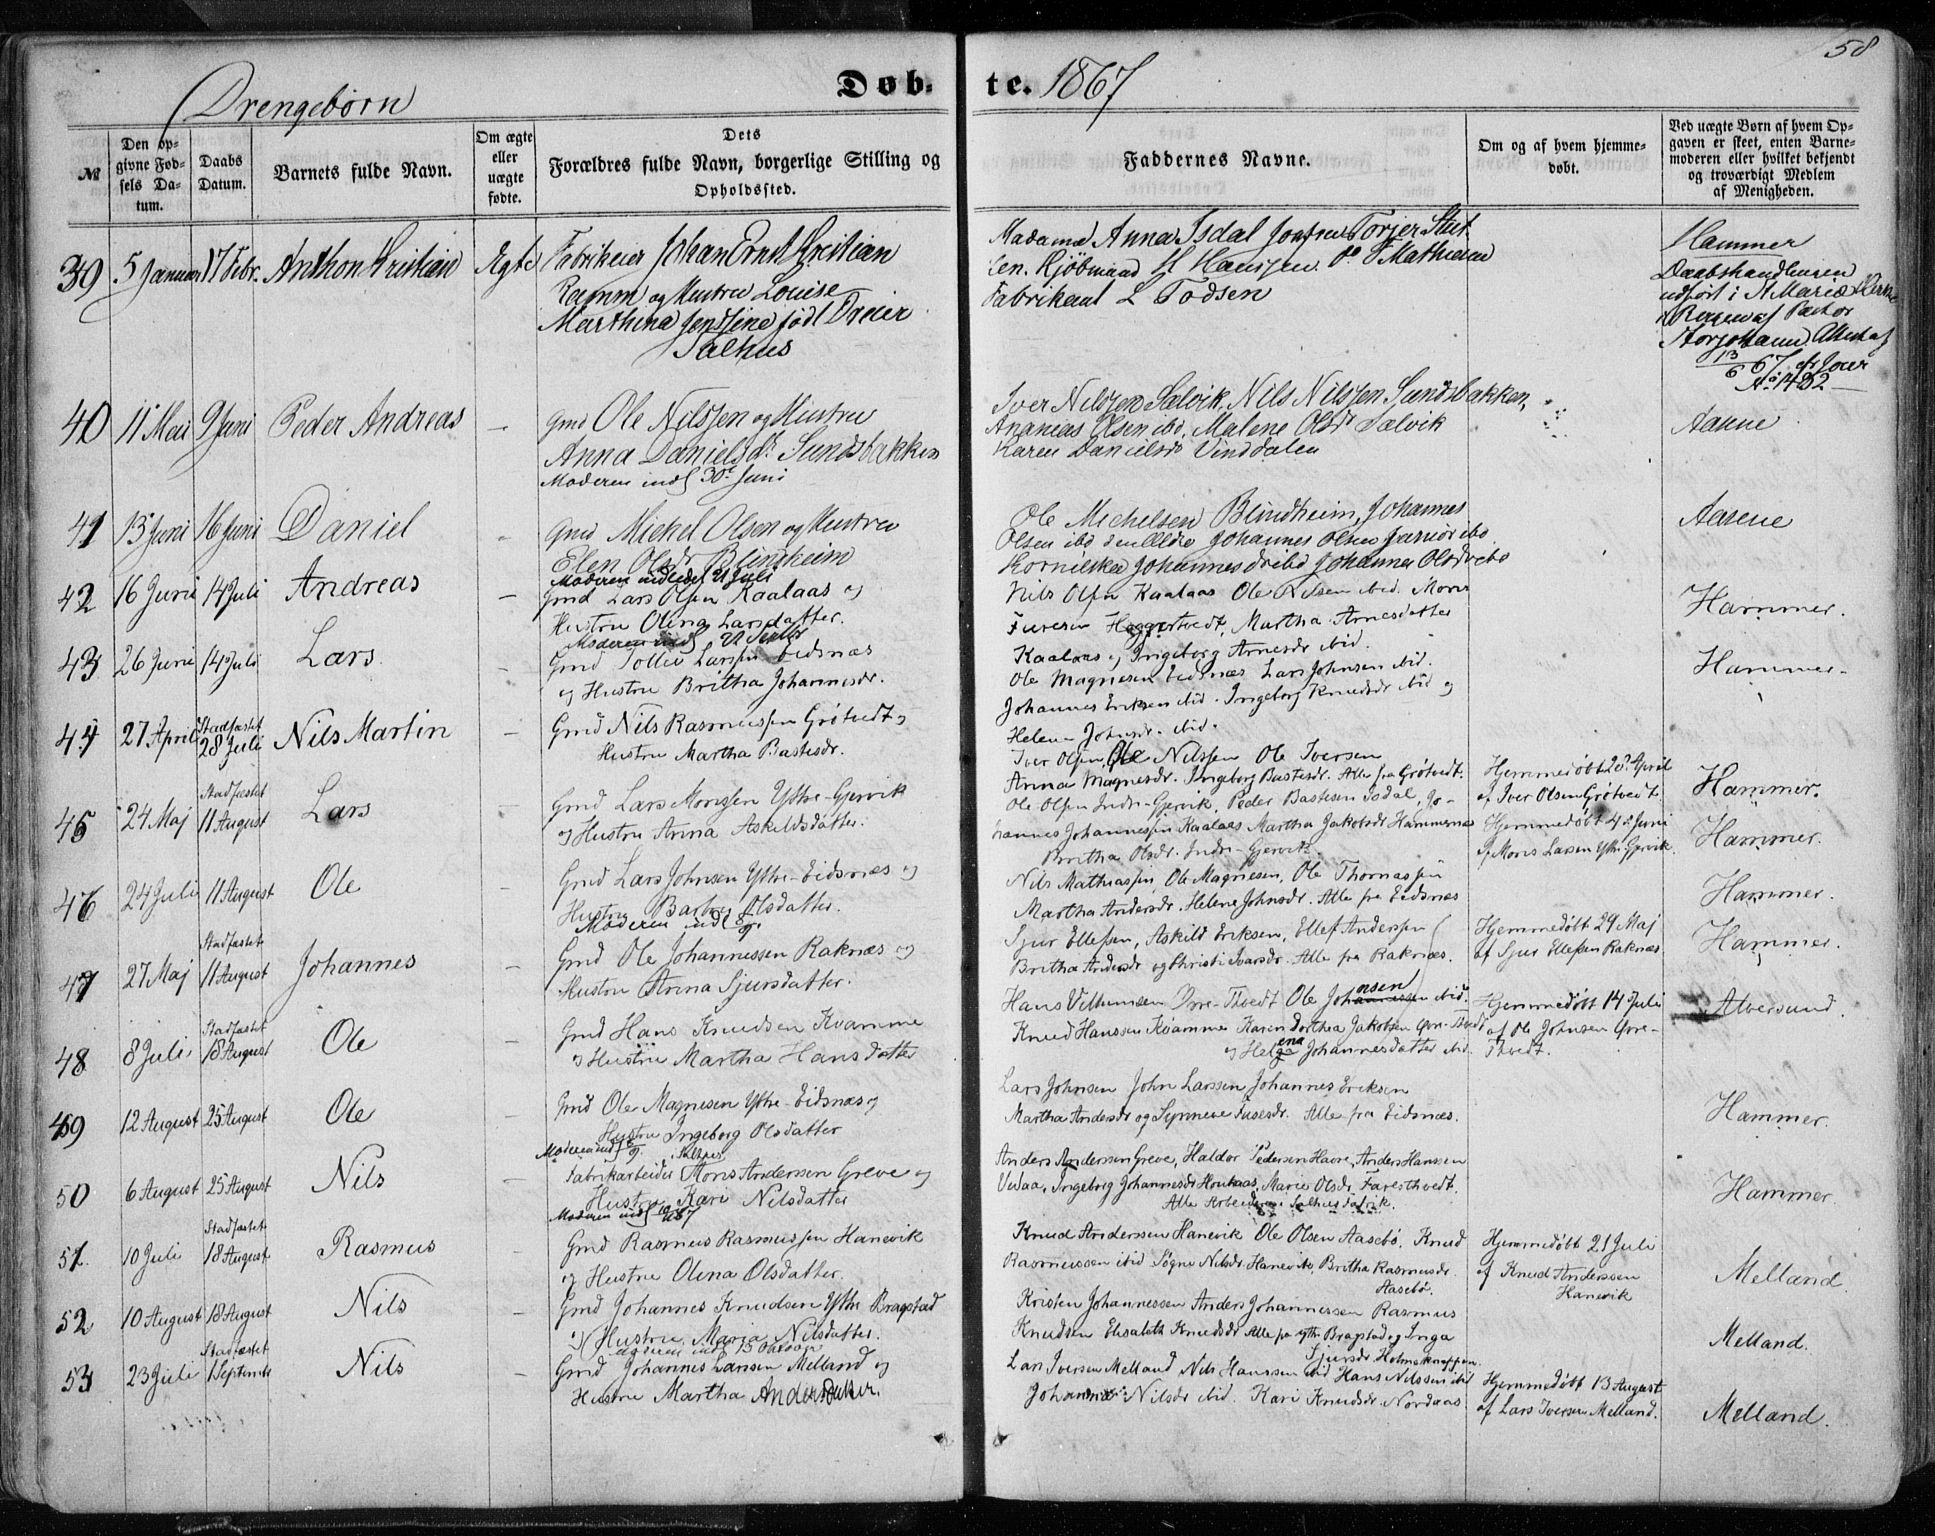 58
Drengebørn
Døb-
te. 1867
№
Den op-
givne Fød-
sels Da-
tum.
Daabs
Datum.
Barnets fulde Navn.
Om ægte
eller
uægte
fødte.
Dets
Forældres fulde Navn, borgerlige Stilling og
Opholdssted.
Faddernes Navne.
Om og af hvem hjemme-
døbt.
Ved uægte Børn af hvem Op-
gaven er skeet, enten Barne-
moderen eller hvilket bekjendt
og troværdigt Medlem
af Menigheden.
39 5 Januar 17 Febr. Anthon Kristian Ægte
Fabrikeier Johan Ernst Kristian
Ramm og Hustru Louise
Marthina født Dreier
Salhus
Madame Anna Isdal Jomfru
Kjøbmand H Hanssen
Fabrikant L Todsen
Hammer
Daabshandlingen
udført i St Mariæ Kirke
i Bergen af Pastor
Storjohann
13/6 67
40 11 Mai 9 Juni Peder Andreas —
Gmd Ole Nilssen og Hustru
Anna Danielsdr Sundsbakken
Moderen indl 30te Juni
Iver Nilssen Sælvik, Nils Nilssen Sundsbakken,
Ananias Olsen ibd, Malene Olsdr Sælvik
Karen Danielsdr Vinddalen
Aasene
41 13 Juni 16 Juni Daniel -
Gmd Mickel Olsen og Hustru
Elen Olsdr Blindheim
Moderen indledet 21 Juli
Ole Michelsen Blindheim, Johannes
Olsen ibd den Ældre Johannes Olsen junior ibd
Kornilska Johannesdr ibd Johanna Olsdr ibd
Aasene
42 16 Juni 14 Juli Andreas —
Gmd Lars Olsen Kaalaas og
Hustru Olina Larsdatter.
Moderen indl 21 Septbr
Nils Olsen Kaalaas Ole Nilsen ibid. Mons
Furesen Heggertvedt, Martha Arnesdatter
Kaalaas og Ingeborg Arnesdr ibid.
Hammer.
43 26 Juni 14 Juli Lars. —
Gmd Tollev Larssen Eidsnæs
og Hustru Britha Johannesdr.
Ole Magnesen Eidsnæs Lars Johnsen ibid.
Johannes Eriksen ibid. Ingeborg Knudsdr ibid og
Helena Johnsdr. ibid.
Hammer.
44 27 April Stadfæstet
28 Juli Nils Martin —
Gmd Nils Rasmussen Grøtvedt og
Hustru Martha Bastesdr.
Iver Olsen, Ole Nilssen Ole Iversen
Anna Magnesdr. Ingeborg Bastesdr. Alle fra Grøtvedt.
Hjemmedøbt 28 April
af Iver Olsen Grøtvedt
Hammer.
45 24 Maj Stadfæstet
11 August Lars -
Gmd Lars Monssen Ystre-Gjervik
og Hustru Anna Askildsdatter.
Ole Olsen Indre-Gjervik, Peder Bastesen Isdal, Jo-
hannes Johannessen Kaalaas Martha Jakobsdr Hammernæs
Britha Olsdr. Indre-Gjervik.
Hjemmedøbt 4de Juni
af Mons Larsen Ystre-Gjervik.
Hammer.
46 24 Juli 11 August Ole —
Gmd Lars Johnsen Ystre-Eidsnæs og
Hustru Barbro Olsdatter.
Moderen indl
Nils Mathiassen, Ole Magnesen, Ole Thomassen
Martha Andersdr. Helene Johnsdr. Alle fra Eidsnæs
Hammer.
47 27 Maj Stadfæstet
11 August Johannes —
Gmd Ole Johannessen Raknæs og
Hustru Anna Sjursdatter.
Sjur Ellefsen, Askild Eriksen, Ellef Anderssen
Britha Andersdr og Christi Ivarsdr. Alle fra Raknæs.
Hjemmedøbt 29 Maj
af Sjur Ellefsen Raknæs.
Hammer.
48 8 Juli Stadfæstet
18 August Ole
Gmd Hans Knudsen Kvamme
og Hustru Martha Hansdatter
Hans Villumsen Øvre-Tvedt Ole Johnsen ibid.
Knud Hanssen Kvamme Karen Dorthea Jakobsen Øvre-Tvedt
og Helena Johannesdatter ibid.
Hjemmedøbt 14 Juli
af Ole Johnsen Øvre-
Tvedt.
Alversund.
49 12 August 25 August Ole -
Gmd Ole Magnesen Ystre-Eidsnæs og
Hustru Ingeborg Olsdatter
Moderen indl
Lars Johnsen John Larssen, Johannes Eriksen
Martha Andersdr og Synneve Fusesdr. Alle fra Eidsnæs.
Hammer.
50 6 August 25 August Nils —
Salhus
Fabrikarbeider Mons Anderssen Greve og
Hustru Kari Nilsdatter
Moderen indl
Anders Anderssen Greve, Haldor Pedersen Havre, Anders Hanssen
Vedaa, Ingeborg Johannesdr Houkaas, Marie Olsdr. Faresthvedt.
Alle Arbeidere i Salhus Fabrik.
Hammer.
51. 10 Juli Stadfæstet
18 August Rasmus —
Gmd Rasmus Rasmussen Hanevik
og Hustru Olina Olsdatter.
Knud Anderssen Hanevik Ole Olsen Aasebø. Knud
Rasmussen ibid Søgne Nilsdr. Hanevik, Britha Rasmusdr.
Aasebø.
Hjemmedøbt 21 Juli
af Knud Anderssen
Hanevik
Melland.
52 10 August 18 August Nils —
Gmd Johannes Knudsen Ystre Bragstad
og Hustru Maria Nilsdatter.
Moderen indl 13 Oktober
Kristen Johannessen Anders Johannessen Rasmus
Knudsen Elisabeth Knudsdr Alle fra ytre Bragstad og Inga
Sjursdr Holmeknappen
Melland.
53 23 Juli Stadfæstet
1 September Nils —
Gmd Johannes Larssen Melland og
Hustru Martha Andersdatter.
Lars Iversen Melland Nils Hanssen ibid Hans Nilssen ibid
Johanne Nilsdr ibid. Kari Knudsdr Nordaas
Hjemmedøbt 13 August
af Lars Iversen Melland.
Melland.